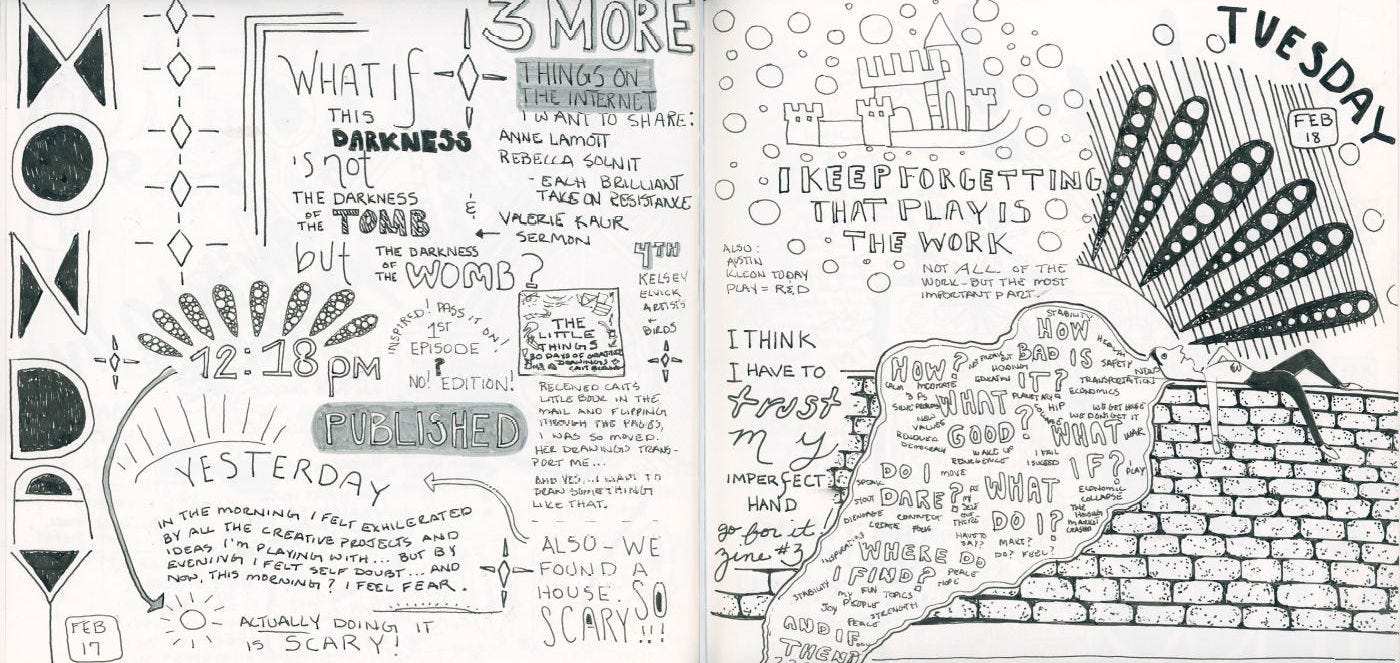 MONDAY
FEB
17
WHAT IF
THIS
DARKNESS
is not
THE DARKNESS
OF THE TOMB
but THE DARKNESS
OF THE WOMB?
3 MORE
THINGS ON
THE INTERNET
I WANT TO SHARE:
ANNE LAMOTT
REBECCA SOLNIT
- EACH BRILLIANT
TAKE ON RESISTANCE
&
VALERIE KAUR
SERMON
4TH
KELSEY
ARTISTS
+
BIRDS
12:18 PM
INSPIRED! PASS IT ON!
1ST
EPISODE
?
NO! EDITION!
PUBLISHED
THE
LITTLE
THINGS
30 DAYS OF
DRAWINGS
RECEIVED CAITS
LITTLE BOOK IN THE
MAIL AND FLIPPING
THROUGH THE PAGES,
I WAS SO MOVED.
HER DRAWINGS TRANS-
PORT ME...
AND YES... I WANT TO
DRAW SOMETHING
LIKE THAT.
YESTERDAY
IN THE MORNING I FELT EXHILERATED
BY ALL THE CREATIVE PROJECTS AND
IDEAS I'M PLAYING WITH... BUT BY
EVENIING I FELT SELF DOUBT... AND
NOW, THIS MORNING? I FEEL FEAR.
ACTUALLY DOING IT
IS SCARY!
ALSO - WE
FOUND A
HOUSE.
SCARY SO
!!!
TUESDAY
FEB
18
I KEEP FORGETTING
THAT PLAY IS
THE WORK
ALSO:
AUSTIN
KLEON TODAY
PLAY = R&D
NOT ALL OF THE
WORK - BUT THE MOST
IMPORTANT PART.
I THINK
I HAVE TO
trust
my
IMPERFECT
HAND
go for it
zine #3
STABILITY
HOW
BAD IS
IT?
HEALTH
SAFETY
NEWS
TRANSPORTATION
ECONOMICS
HOUSING
EDUCATION
PLANETARY
HOW?
CALM MEDITATE
3 PS
NEW
VALUES
RENEWED
DEMOCRACY
WHAT
GOOD?
WAKE UP
RESURGENCE
WHAT
IF?
WE GET HOUSE
WE DON'T GET IT
WAR
I FAIL
I SUCCEED
PLAY
ECONOMIC
COLLAPSE
THE
HOUSING
MARKET
CRASHES
DO I
DARE?
MOVE
SPEAK
SHOUT
DISENGAGE CONNECT
CREATE
WHAT
DO I?
HAVE TO
SAY?
MAKE?
DO? FEEL?
WHERE DO
I FIND?
INSPIRATION
PEACE
HOPE
STABILITY
MY FUN TOPICS
JOY PEOPLE
STRENGTH
PEACE
AND IF
THEN?